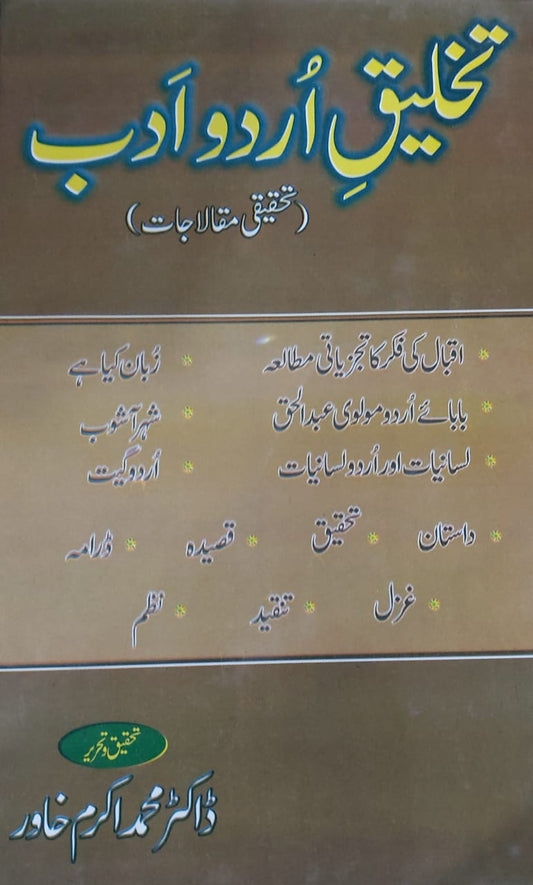 تخلیقِ اُردو اَدب
(تحقیقی مقالاجات)
اقبال کی فکر کا تجزیاتی مطالعہ * زُبان کیا ہے
بابائے اُردو مولوی عبدالحق * شہر آشوب
لسانیات اور اُردو لسانیات * اُردو گیت
داستان * تحقیق * قصیدہ * ڈرامہ
غزل * تنقید * نظم
تحقیق و تحریر
ڈاکٹر محمد اکرم خاور